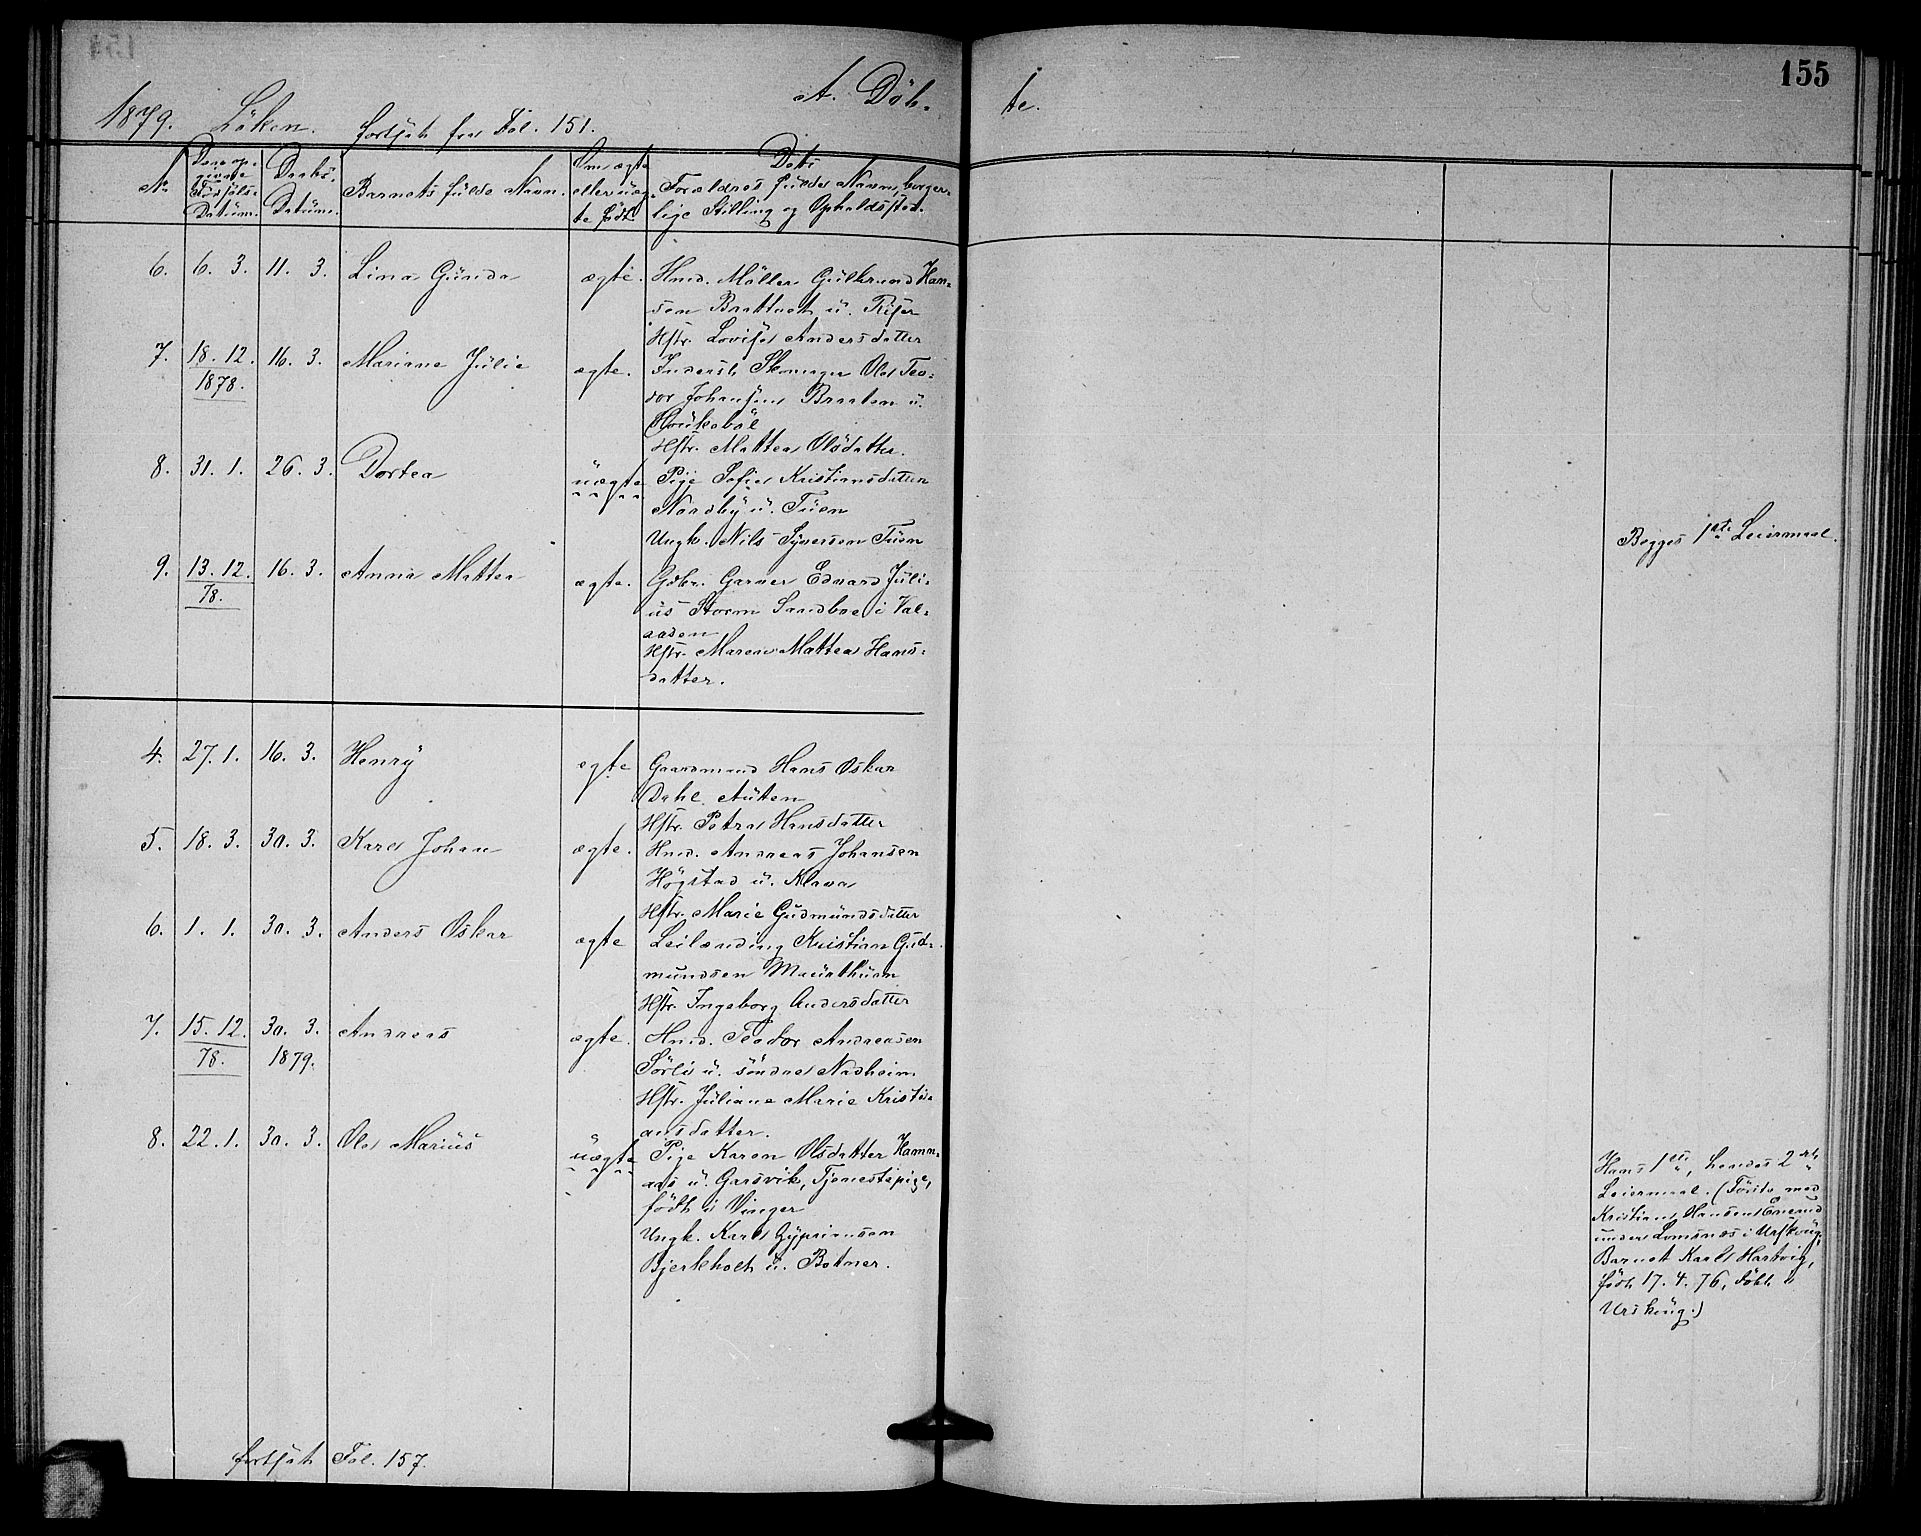 155
A. Döb-
te.
1879. Löken. fortsat fra Fol. 151.
No
Den op-
givne
Födsels-
Datum.
Daabs-
Datum.
Barnets fulde Navn.
Om ægte
eller uæg-
te födt.
Dets
Forældres fulde Navn, borger-
lige Stilling og Opholdssted.
6. 6. 3. 11. 3. Lina Gunda ægte. Hmd. Möller Gulbrand Han-
sen Brattvet u. Riser
Hstr. Lovise Andersdatter
7. 18. 12. 1878. 16. 3. Mariane Julie ægte. Inderst Skomager Ole Teo-
dor Johansen Braaten u.
Haukeböl
Hstr. Mattea Olsdatter.
8. 31. 1. 26. 3. Dortea uægte Pige Sofie Kristiansdatter
Nordby u. Tuen
Ungk. Nils Syversen Tuen
Begges 1ste Leiermaal.
9. 13. 12. 78. 16. 3. Anna Mattea ægte. Gdbr. Garver Edvard Juli-
us Storm Sandboe i Val-
aasen
Hstr. Maren Mattea Hans-
datter.
4. 27. 1. 16. 3. Henry ægte Gaardmand Hans Oskar
Dahl. Auten
Hstr. Petra Hansdatter
5. 18. 3. 30. 3. Karl Johan ægte. Hmd. Andreas Johansen
Högstad u. Klava
Hstr. Marie Gudmundsdatter
6. 1. 1. 30. 3. Anders Oskar ægte Leilænding Kristian Gud-
mundsen Maurthuen
Hstr. Ingeborg Andersdatter
7. 15. 12. 78. 30. 3. 1879. Andreas ægte. Hmd. Teodor Andreasen
Sörli u. söndre Nadheim
Hstr. Juliane Marie Kristi-
ansdatter.
8. 22. 1. 30. 3. Ole Marius uægte Pige Karen Olsdatter Hamn-
aas u. Garsvik, Tjenestepige,
födt i Vinger
Ungk. Karl Gypriansen
Bjerkholt u. Botner.
Hans 1ste, hendes 2det
Leiermaal. (Förste med
Kristian Hansen Enerud
under Lomsnes i Urskoug,
Barnet Karl Hartvig,
födt 17. 4. 76, döbt i
Urskoug.)
fortsat Fol. 157.